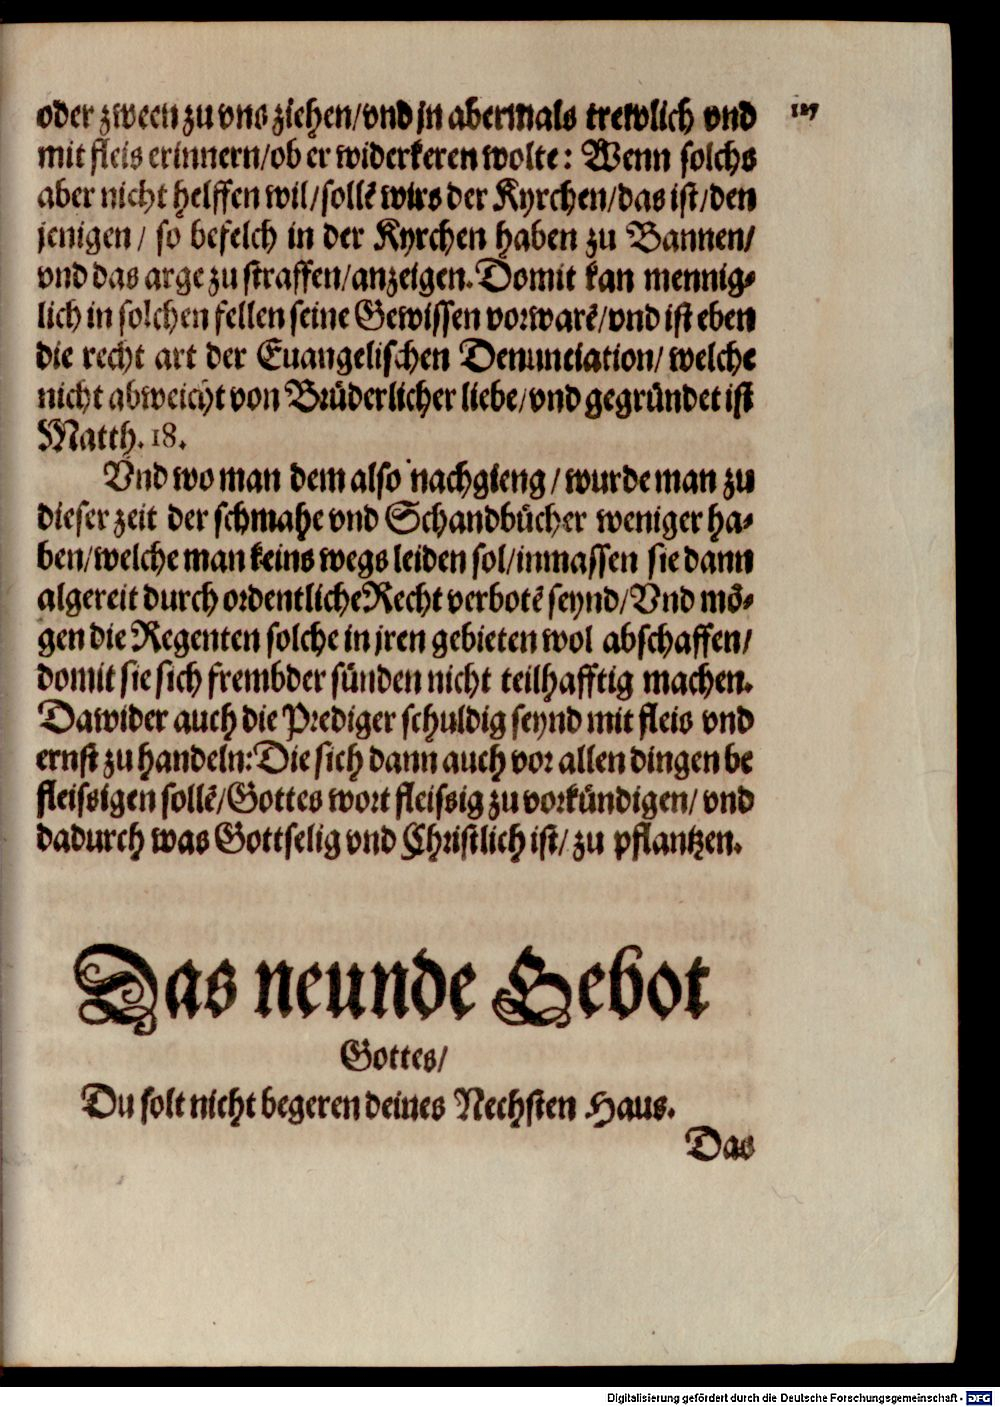 oder zween zu vns ziehen/vnd jn abermals trewlich vnd
127
mit fleis erinnern/ob er widerkeren wolte: Wenn solchs
aber nicht helffen wil/sollē wirs der Kyrchen/das ist/den
jenigen/ so befelch in der Kyrchen haben zu Bannen/
vnd das arge zu straffen/anzeigen. Domit kan mennig⸗
lich in solchen fellen seine Gewissen vorwarē/vnd ist eben
die recht art der Euangelischen Denunciation/ welche
nicht abweicht von Brüderlicher liebe/vnd gegründet ist
Matth. 18.
Vnd wo man dem also nachgieng/ wurde man zu
dieser zeit der schmahe vnd Schandbücher weniger ha⸗
ben/welche man keins wegs leiden sol/inmassen sie dann
algereit durch ordentliche Recht verbotē seynd/Vnd mö⸗
gen die Regenten solche in jren gebieten wol abschaffen/
domit sie sich frembder sünden nicht teilhafftig machen.
Dawider auch die Prediger schuldig seynd mit fleis vnd
ernst zu handeln: Die sich dann auch vor allen dingen be
fleissigen sollē/Gottes wort fleissig zu vorkündigen/ vnd
dadurch was Gottselig vnd Christlich ist/ zu pflantzen.
Das neunde Gebot
Gottes/
Du solt nicht begeren deines Nechsten Haus.
Das
Digitalisierung gefördert durch die Deutsche Forschungsgemeinschaft - DFG